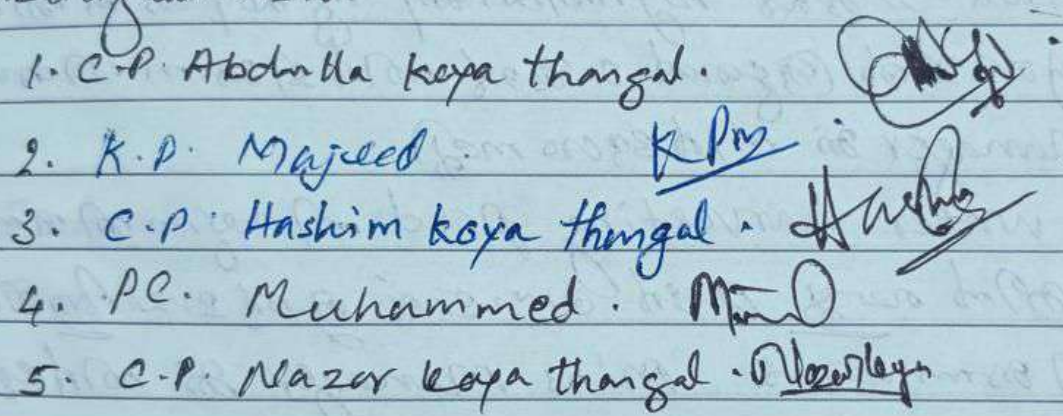 1. C.P. Abdulla koya thangal.
2. K.P. Majeed. KPM
3. C.P. Hashim koya thangal.
4. P.C. Muhammed.
5. C.P. Nazar koya thangal.